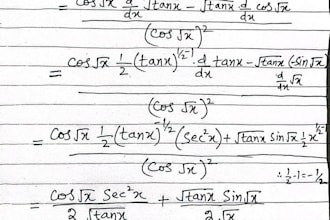 = cos√x d/dx √tanx - √tanx d/dx cos√x
(cos√x)²
= cos√x 1/2 (tanx)^(1/2-1) · d/dx tanx - √tanx (-sin√x) d/dx √x
(cos√x)²
= cos√x 1/2 (tanx)^(-1/2) (sec²x) + √tanx sin√x 1/2 x^(1/2-1)
(cos√x)²
∴ 1/2 - 1 = -1/2
= cos√x sec²x / 2√tanx + √tanx sin√x / 2√x